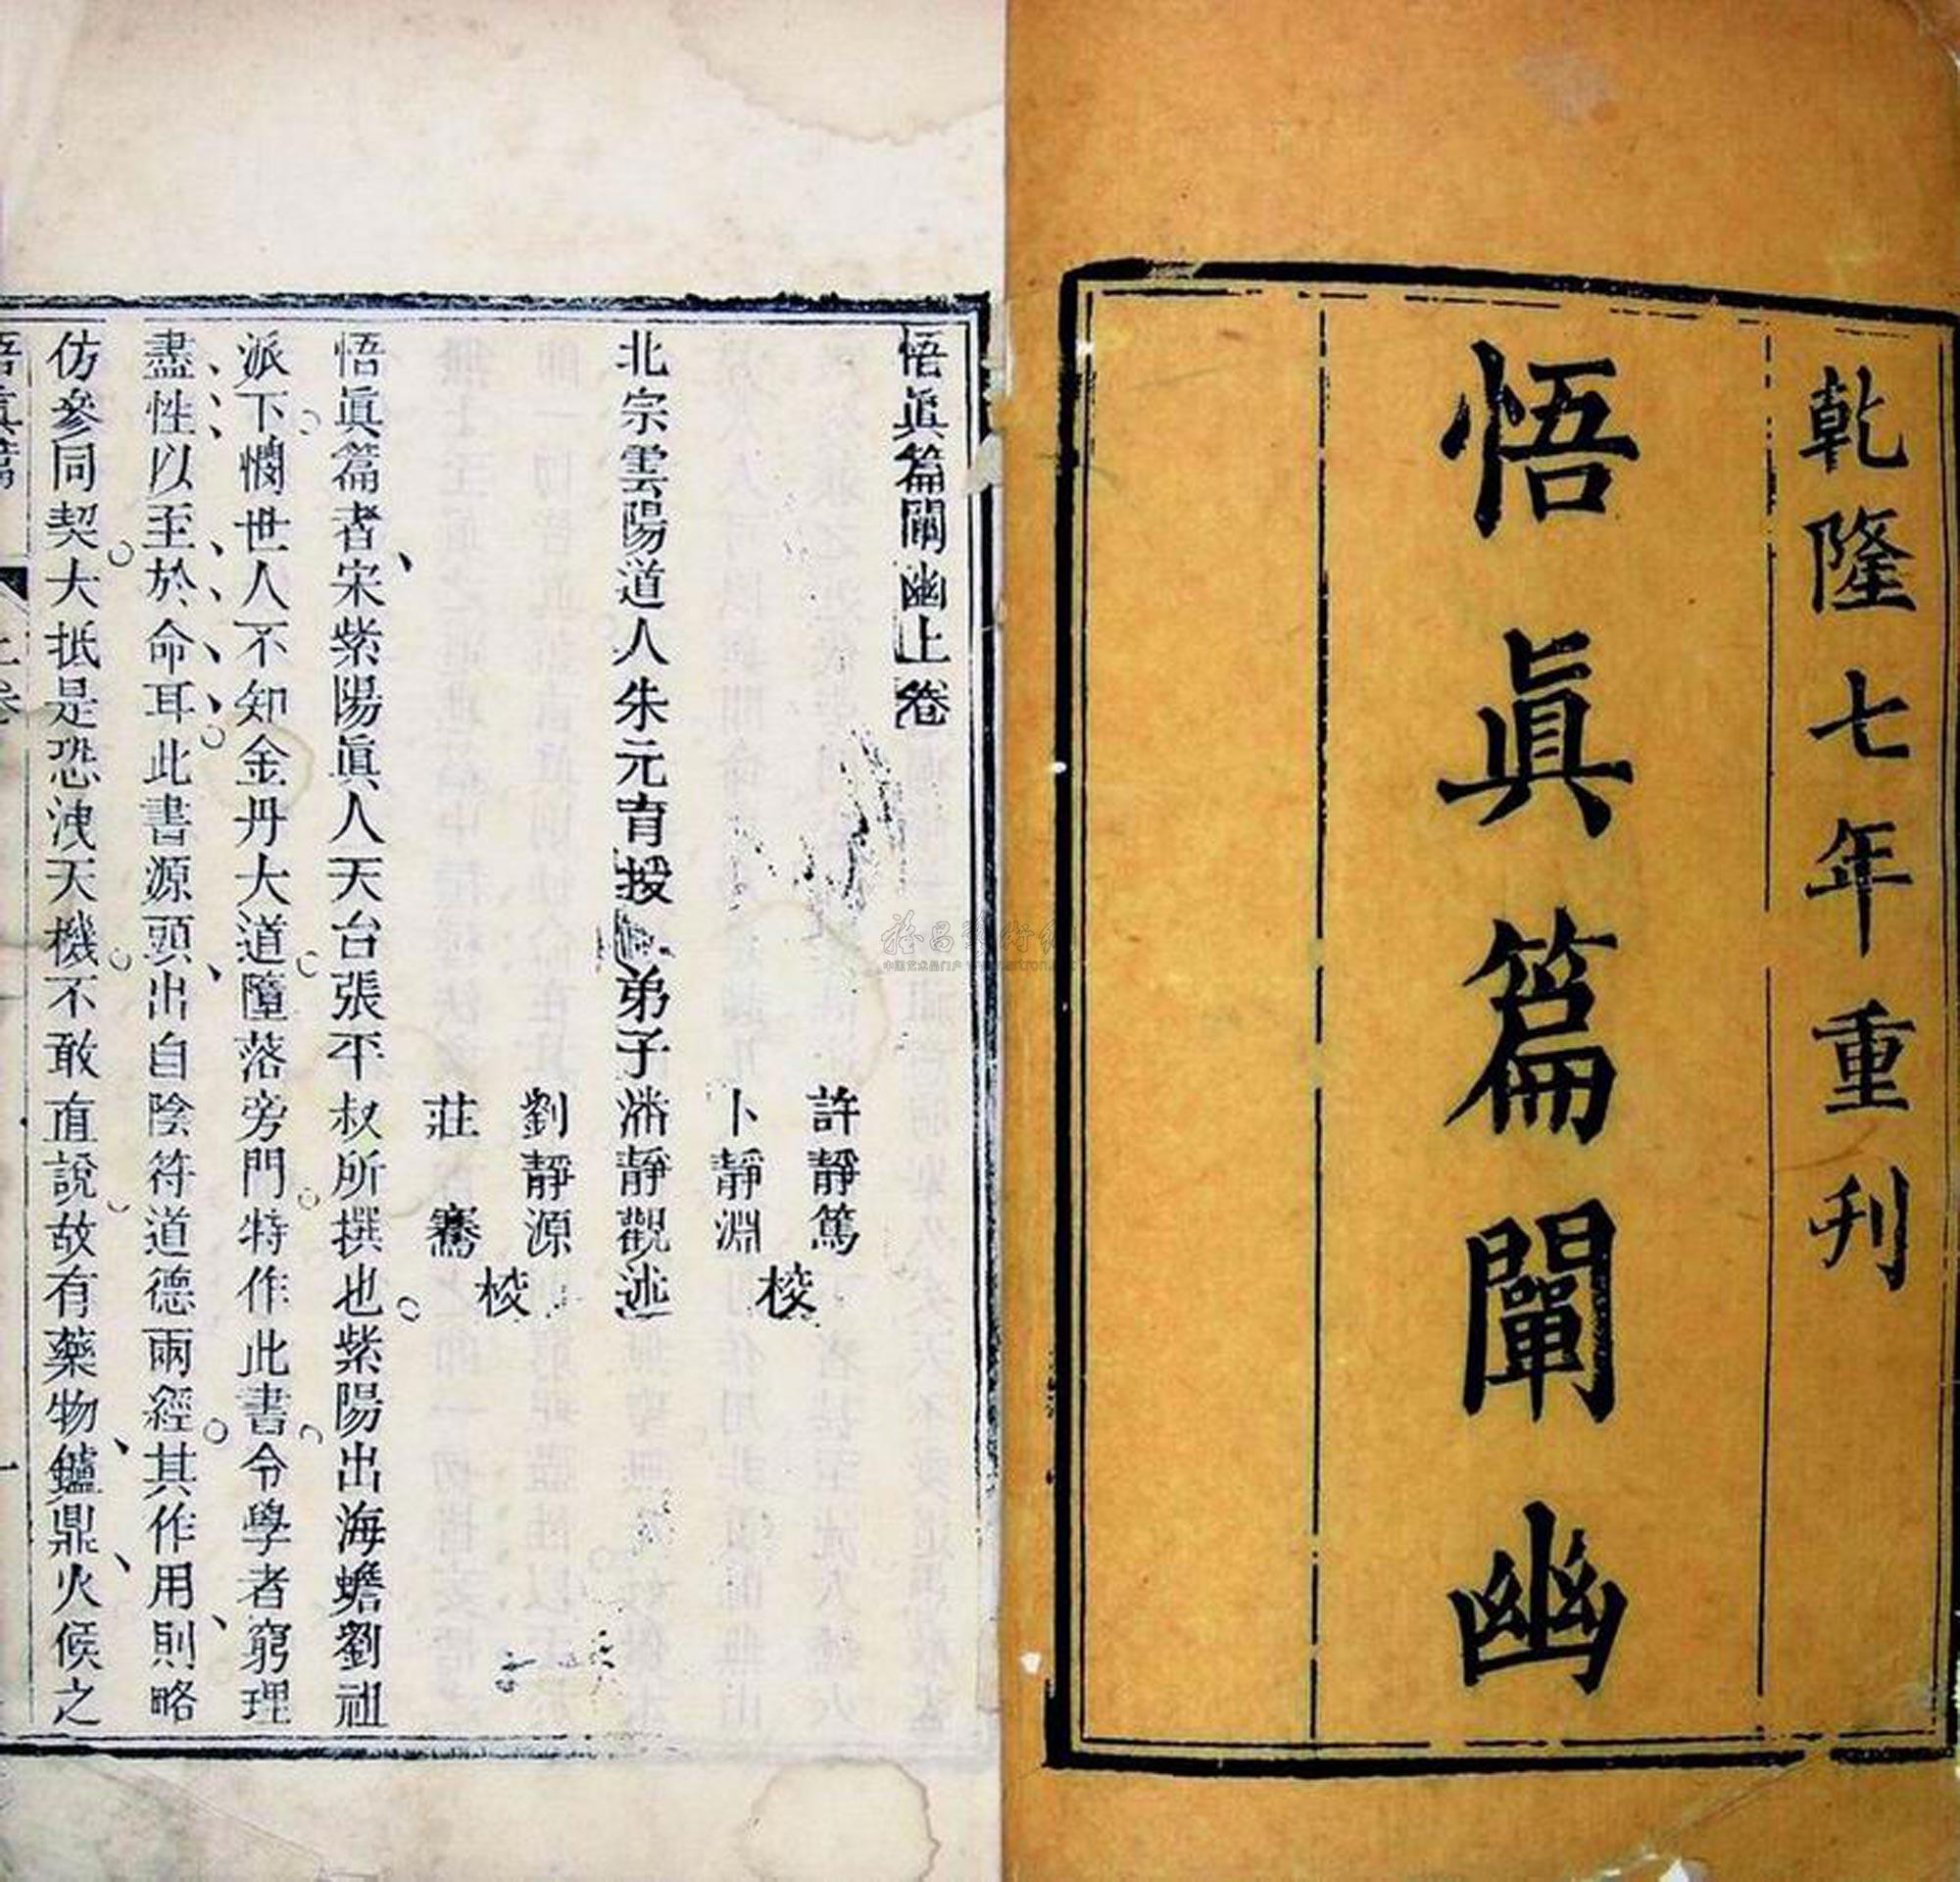 乾隆七年重刊
悟眞篇闡幽
悟眞篇闡幽上卷
許靜篤
卜靜淵
校
北宗雲陽道人朱元育授
弟子潘靜觀述
劉靜源
莊騫
校
悟眞篇者宋紫陽眞人天台張平叔所撰也紫陽出海蟾劉祖
派下憫世人不知金丹大道墮落旁門特作此書令學者窮理
盡性以至於命耳此書源頭出自陰符道德兩經其作用則略
仿參同契大抵是恐洩天機不敢直說故有藥物鑪鼎火候之
悟眞篇
上卷
一